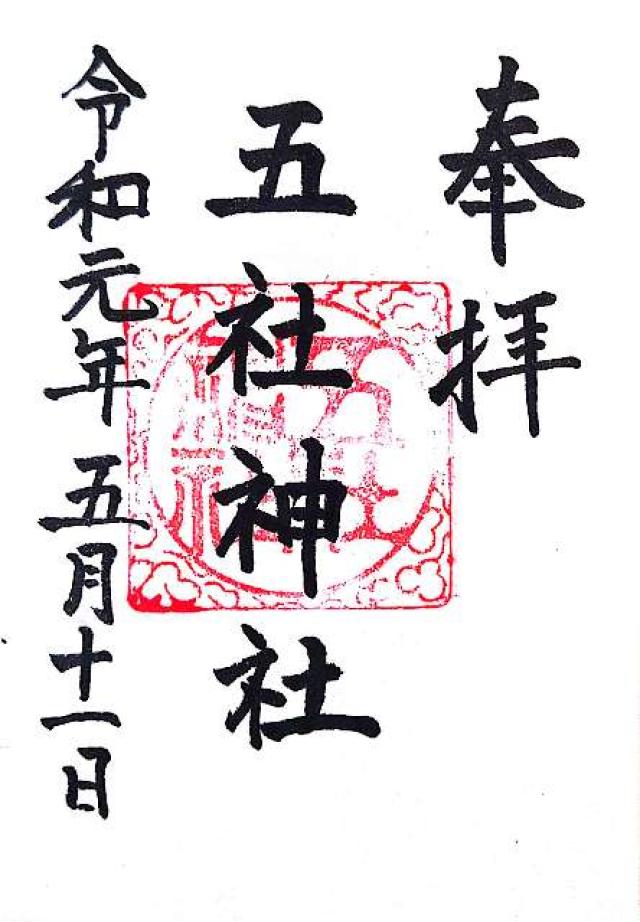 奉拝
五社神社
令和元年五月十一日